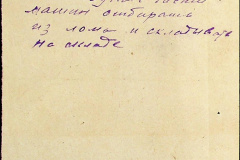 машин отбирать
из лома и складывать
на складе